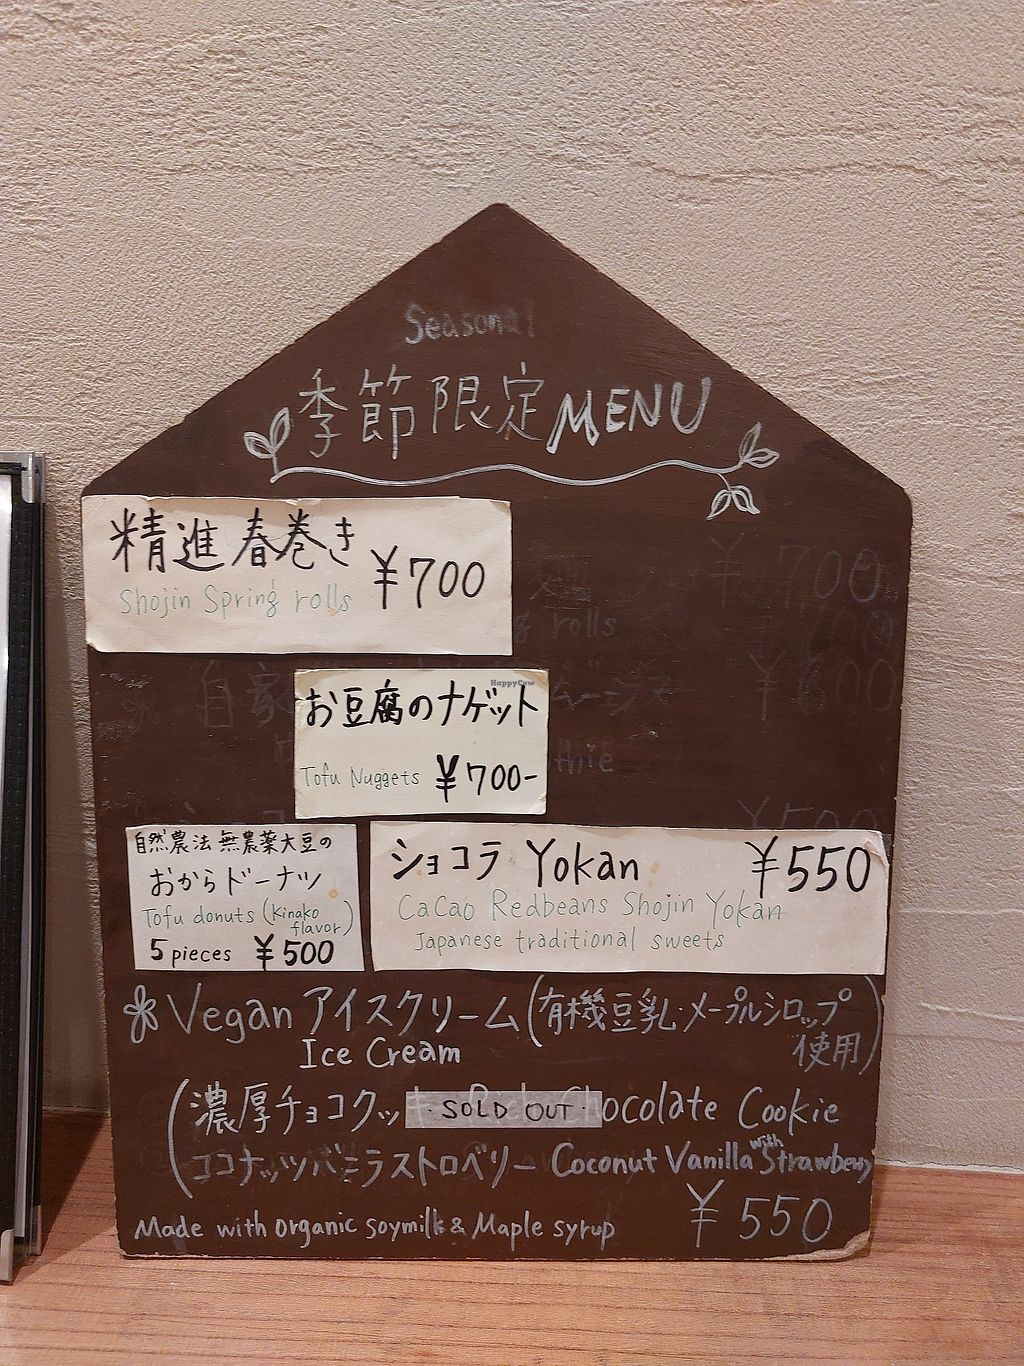 Seasonal
季節限定MENU
精進春巻き ¥700
Shojin Spring rolls
rolls
HappyCow
お豆腐のナゲット
Tofu Nuggets ¥700-
自然農法無農薬大豆の
おからドーナツ
Tofu donuts (Kinako flavor)
5 pieces ¥500
ショコラ Yokan ¥550
CaCao Redbeans Shojin Yokan
Japanese traditional sweets
Vegan アイスクリーム(有機豆乳・メープルシロップ
使用)
Ice Cream
(濃厚チョコクッ SOLD OUT Chocolate Cookie
ココナッツバニラストロベリー Coconut Vanilla with Strawberry
¥550
Made with organic soymilk & Maple syrup